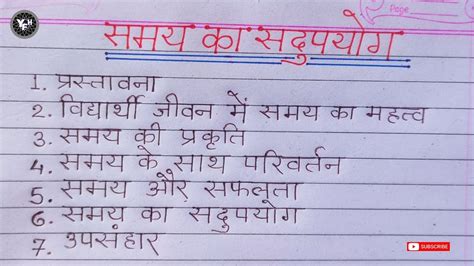 Page
समय का सदुपयोग
1. प्रस्तावना
2. विद्यार्थी जीवन में समय का महत्व
3. समय की प्रकृति
4. समय के साथ परिवर्तन
5. समय और सफलता
6. समय का सदुपयोग
7. उपसंहार
SUBSCRIBE